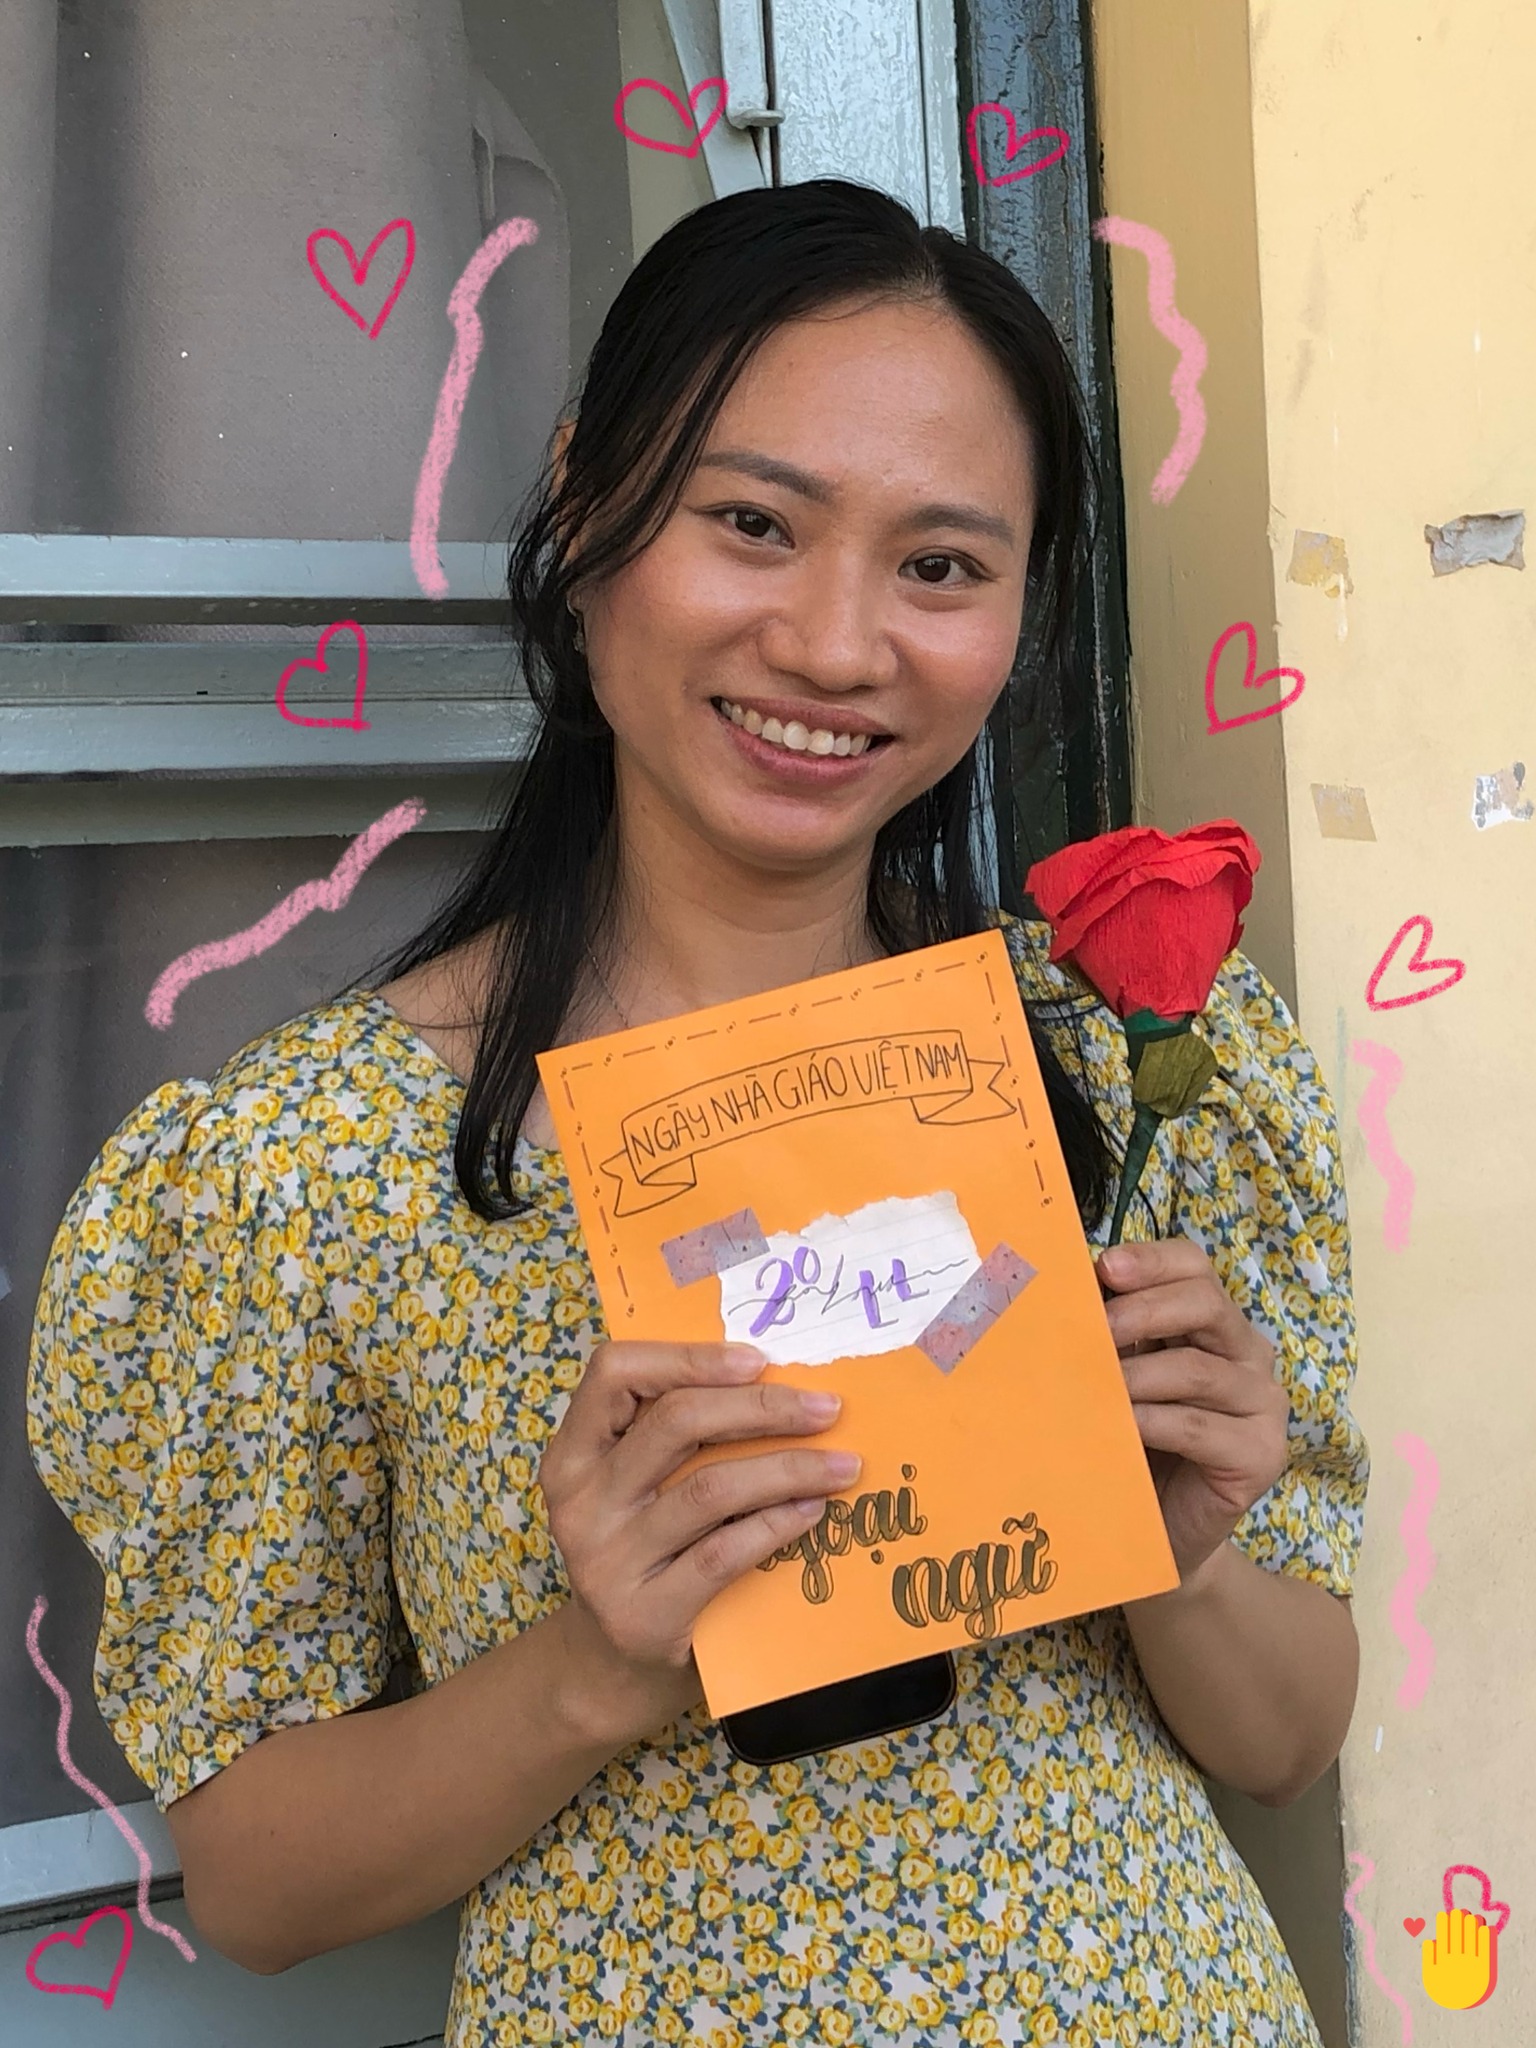 NGÀY NHÀ GIÁO VIỆT NAM
20/11
ngoại
ngữ